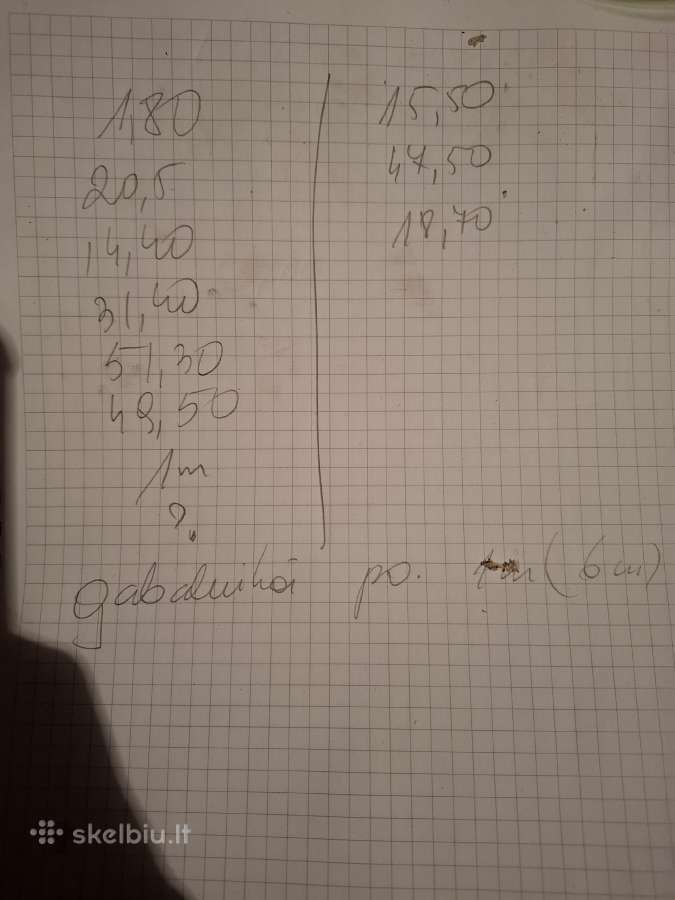 1,80
20,5
14,40
31,40
51,30
49,50
1m
?
15,50
47,50
18,70
gabaliukai po. (6 cm)
skelbiu.lt